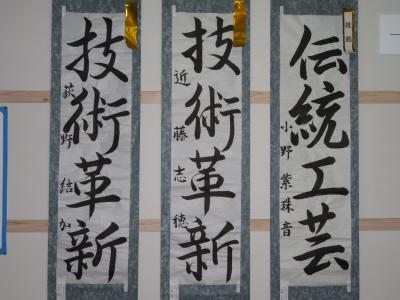 伝統工芸
小野紫珠音
技術革新
近藤志穂
技術革新
荻野結加